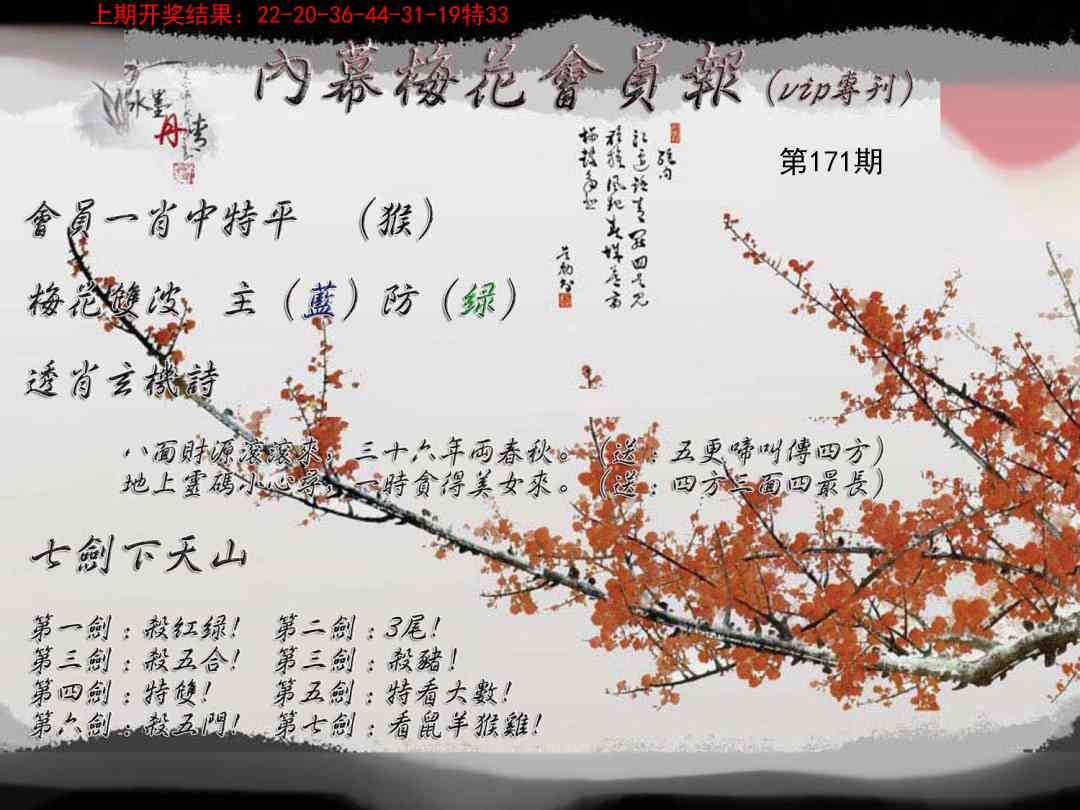 上期开奖结果：22-20-36-44-31-19特33
內幕梅花會員報（vip專刊）
水墨
丹青
第171期
會員一肖中特平 （猴）
梅花雙波 主（藍）防（绿）
透肖玄機詩
八面財源滾滾來，三十六年両春秋。（送：五更啼叫傳四方）
地上靈碼小心尋，一時貪得美女來。（送：四方三面四最長）
七劍下天山
第一劍：殺紅绿！ 第二劍：3尾！
第三劍：殺五合！ 第三劍：殺豬！
第四劍：特雙！ 第五劍：特看大數！
第六劍：殺五門！ 第七劍：看鼠羊猴雞！